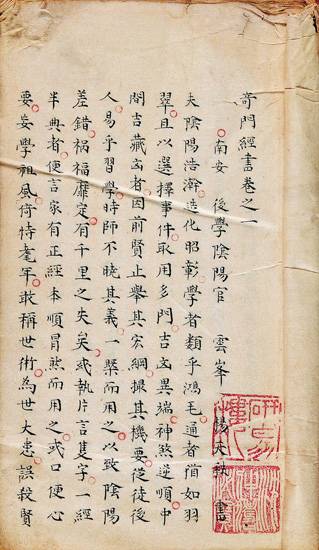 奇門經書卷之一
南安 後學陰陽官 雲峯 楊天秩 書
夫陰陽浩瀚造化昭彰學者類乎鴻毛通者猶如羽
翠且以選擇事件取用多門吉凶異端神煞逆順中
間吉藏凶者因前賢止舉其宏綱撮其機要從徒後
人易乎習學時師不曉其義一槩而用之以致陰陽
差錯禍福靡定有千里之失矣或執片言隻字一經
半典者便言家有正經本順冒然而用之或口便心
要妄學祖風倚恃耄年敢稱世術為世大患誤殺賢